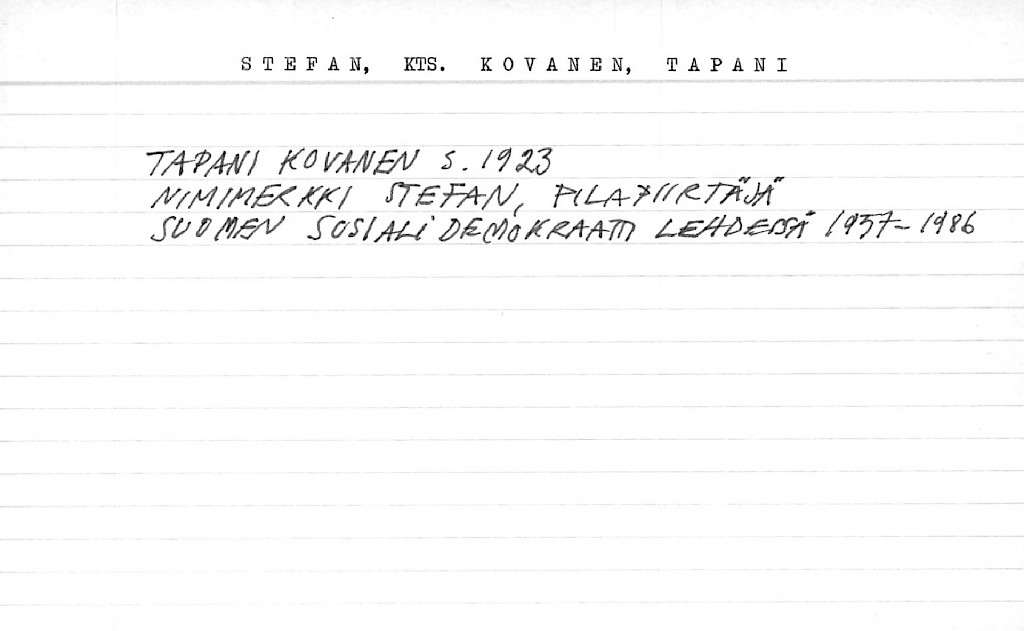 STEFAN, KTS. KOVANEN, TAPANI
TAPANI KOVANEN S. 1923
NIMIMERKKI STEFAN, PILAPIIRTÄJÄ
SUOMEN SOSIALiDEMOKRAATTI LEHDESSÄ 1957-1986